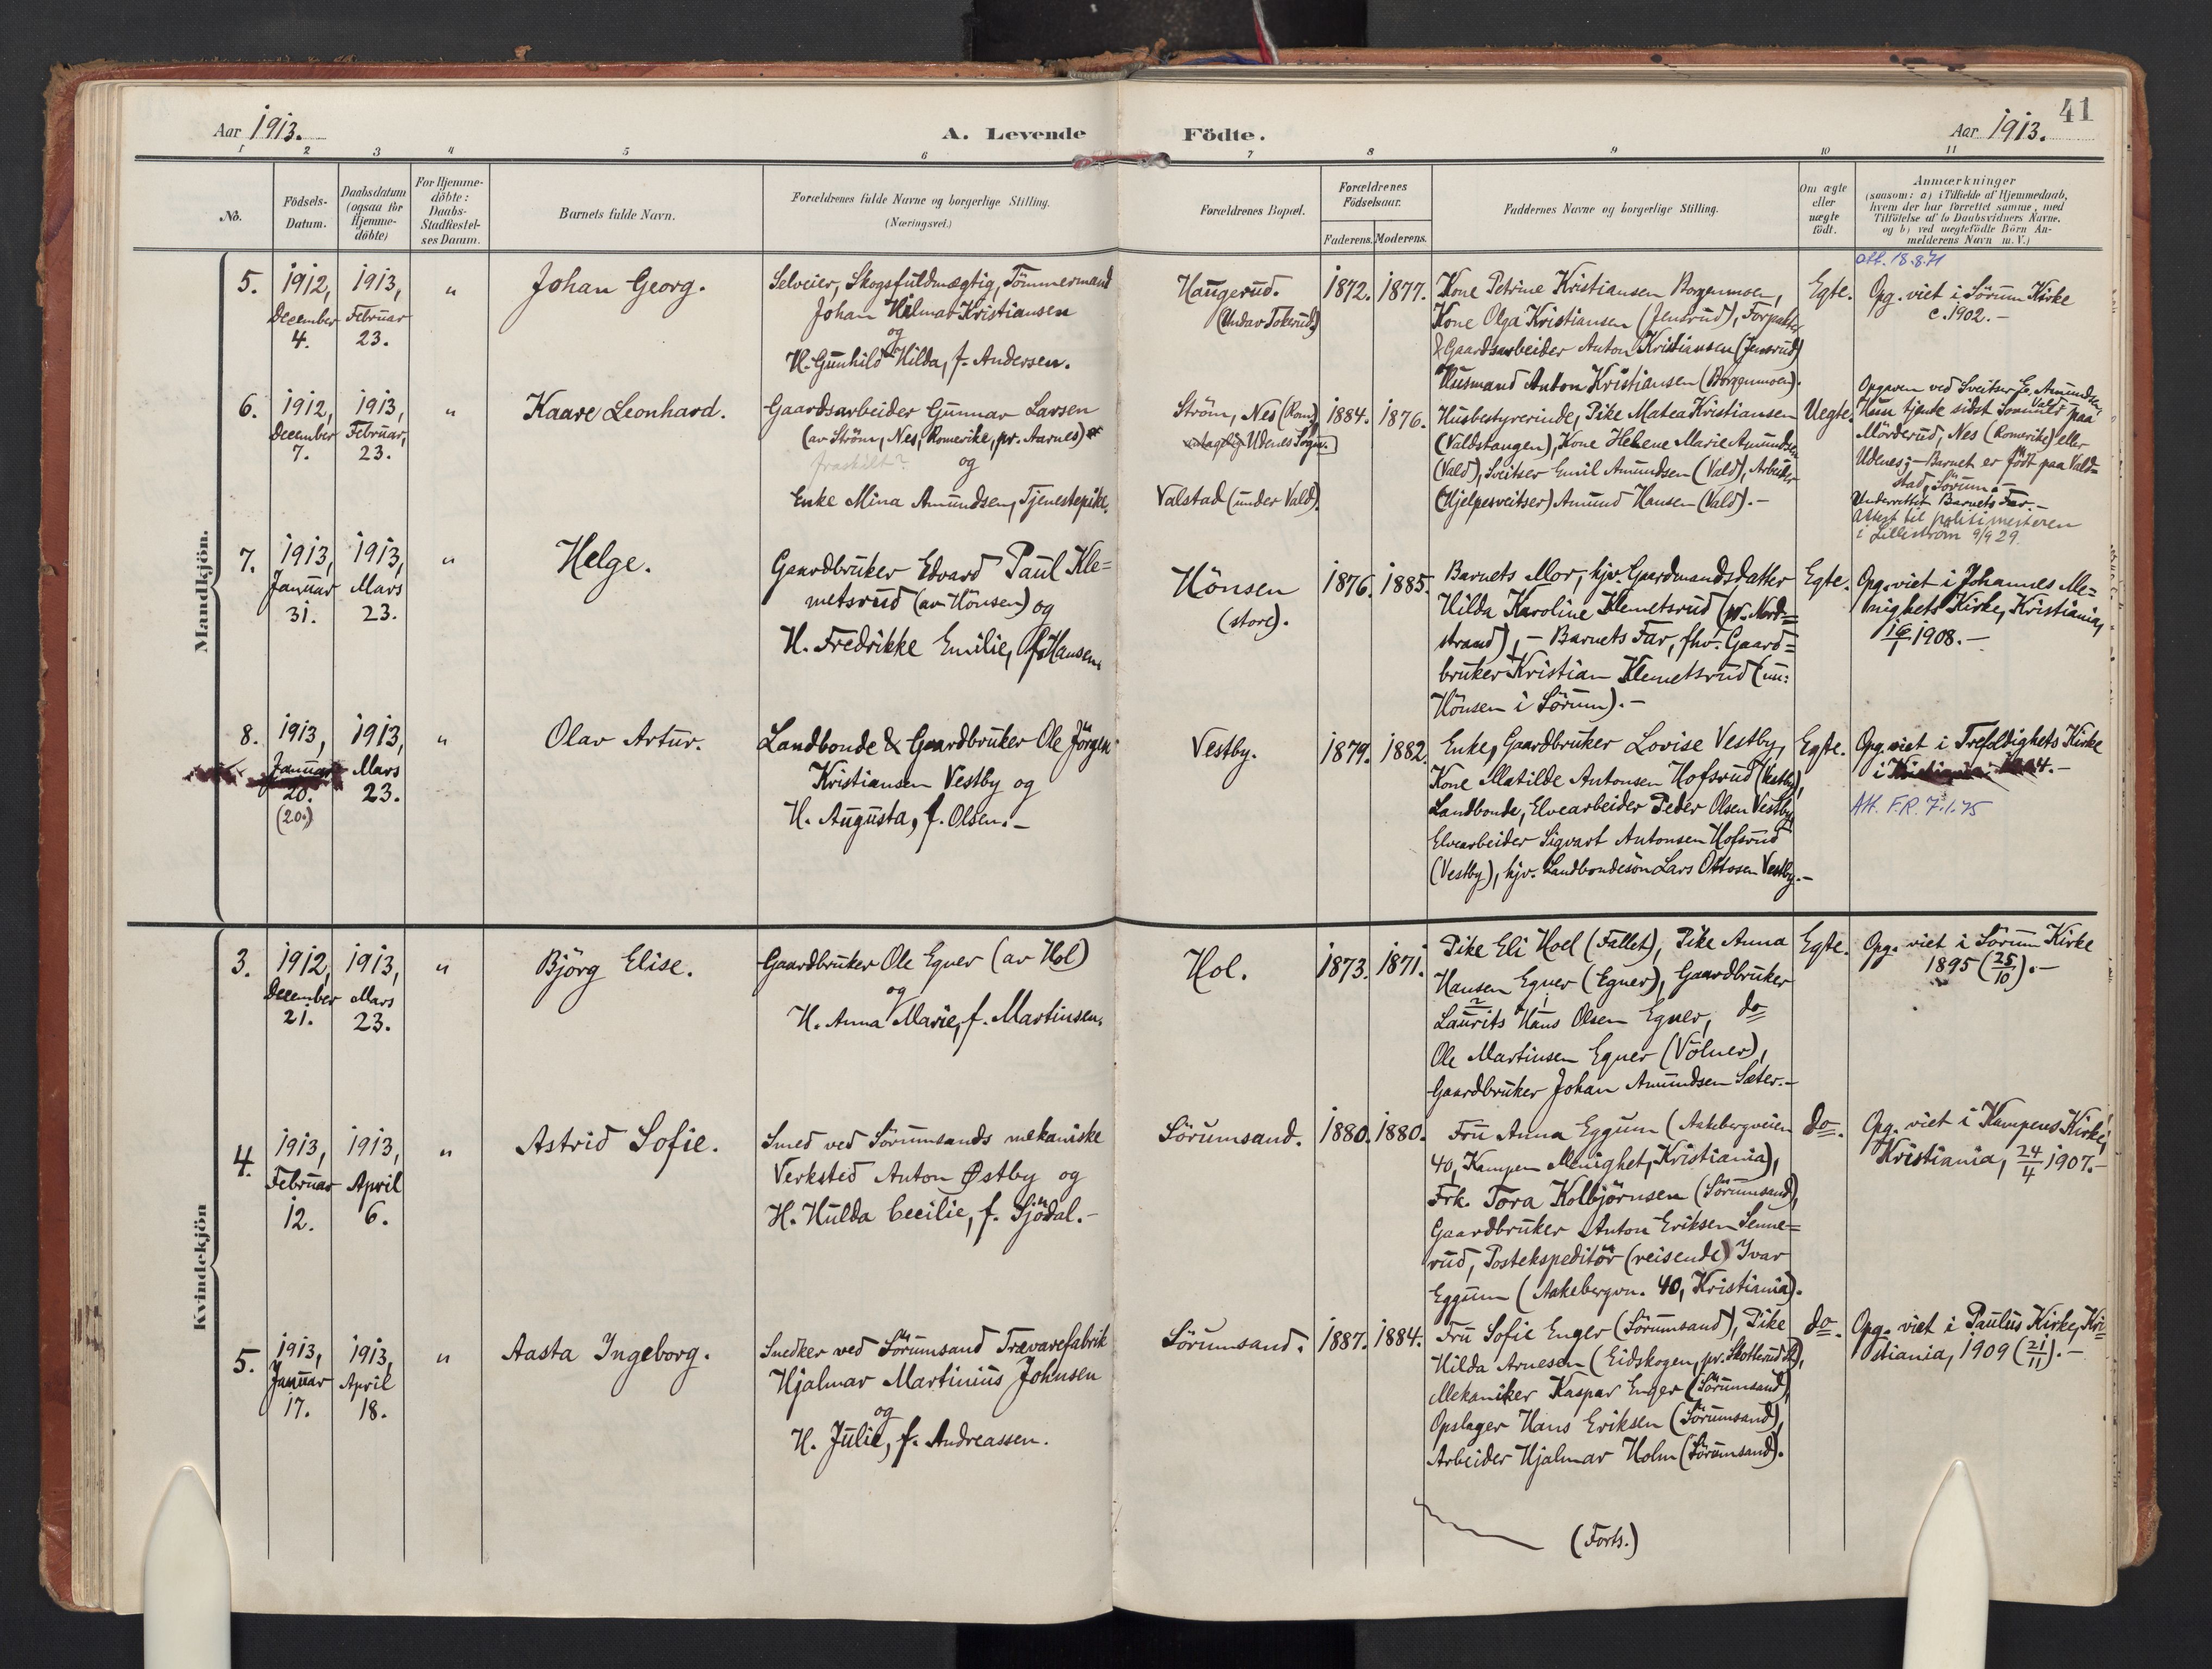 41
Aar 1913.
A. Levende Födte.
Aar 1913.
1 2 3 4 5 6 7 8 9 10 11
No.
Födsels-
Datum.
Daabsdatum
(ogsaa for
Hjemme-
döbte)
For Hjemme-
döbte:
Daabs-
Stadfæstel-
ses Datum.
Barnets fulde Navn.
Forældrenes fulde Navne og borgerlige Stilling.
(Næringsvei.)
Forældrenes Bopæl.
Forældrenes
Födselsaar.
Faderens.
Moderens.
Faddernes Navne og borgerlige Stilling.
Om ægte
eller
uægte
födt.
Anmærkninger
(saasom: a) i Tilfælde af Hjemmedaab,
hvem der har forrettet samme, med
Tilföielse af to Daabsvidners Navne.
og b) ved uægtefödte Börn An-
melderens Navn m. V.)
Mandkjön.
5.
1912,
December
4.
1913,
Februar
23.
"
Johan Georg.
Selveier, Skogsfuldmægtig, Tömmermand
Johan Hilmar Kristiansen
og
H. Gunhild Hilda, f. Andersen.
Haugerud.
(Undav Tokerud.)
1872.
1877.
Kone Petrine Kristiansen Borgenmoen,
Kone Olga Kristiansen (Jensrud), Forpakter
& Gaardsarbeider Anton Kristiansen (Jensrud)
og
Husmand Anton Kristiansen (Borgenmoen).
Egte.
Att. 18.8.71
Opg. viet i Sörum Kirke
c. 1902.-
6.
1912,
December
7.
1913,
Februar,
23.
"
Kaare Leonhard.
Gaardsarbeider Gunnar Larsen
(av Ström, Nes, Romerike, pr. Aarnes)
fraskilt?
og
Enke Mina Amundsen, Tjenestepike.
Ström, Nes (Rom.)
Udenes Sogn.
Valstad (under Vald).
1884.
1876.
Husbestyrerinde, Pike Matea Kristiansen
(Valdstangen), Kone Helene Marie Amundsen
(Vald), Sveitser Emil Amundsen (Vald), Arbeider
(Hjelpesveitser) Amund Hansen (Vald).-
Uegte.
Opgaven ved Sveitser E. Amundsen,
Vald
Hun tjente sidst Sommer paa
Mörderud, Nes (Romerike) eller
Udenes;- Barnet er födt paa Vald-
stad, Sörum.-
Underrettet Barnets Far.-
Attest til politimesteren
i Lilleström 9/9 29.
7.
1913,
Januar
31.
1913,
Mars
23.
"
Helge.
Gaardbruker Edvard Paul Kle=
metsrud (av Hönsen) og
H. Fredrikke Emilie, f. Hansen.
Hönsen
(store).
1876.
1885.
Barnets Mor, hjv. Gaardmandsdatter
Hilda Karoline Klemetsrud (pr. Nord=
strand),- Barnets Far, fhv. Gaard=
bruker Kristian Klemetsrud (nu:
Hönsen i Sörum).-
Egte.
Opg. viet i Johannes Me=
nighets Kirke, Kristiania,
1908.-
8.
1913,
Januar
20.
(20.)
1913,
Mars
23.
"
Olav Artur.
Landbonde & Gaardbruker Ole Jörgen
Kristiansen Vestby og
H. Augusta, f. Olsen.-
Vestby.
1879.
1882.
Enke, Gaardbruker Lovise Vestby,
Kone Matilde Antonsen Hofsrud (Vestby),
Landbonde, Elvearbeider Peder Olsen Vestby,
Elvearbeider Sigvart Antonsen Hofsrud
(Vestby), hjv. Landbondesön Lars Ottosen Vestby.-
Egte.
Opg. viet i Trefoldighets Kirke
i Kristiania 1904.-
Att. F.R. 7.1.75
Kvindekjön
3.
1912,
December
21.
1913,
Mars
23.
"
Björg Elise.
Gaardbruker Ole Egner (av Hol)
og
H. Anna Marie, f. Martinsen.
Hol.
1873.
1871.
Pike Eli Hoel (Fallet), Pike Anna
Hansen Egner (Egner), Gaardbruker
2 1
Laurits Hans Olsen Egner, do
Ole Martinsen Egner (Völner),
Gaardbruker Johan Amundsen Sæter.-
Egte.
Opg. viet i Sörum Kirke
1895 (25/10).-
4.
1913,
Februar
12.
1913,
April
6.
"
Astrid Sofie.
Smed ved Sörumsands mekaniske
Verksted Anton Østby og
H. Hulda Cecilie, f. Sjödal.-
Sörumsand.
1880.
1880.
Fru Anna Eggum (Aakebergveien
40, Kampen Menighet, Kristiania),
Frk. Tora Kolbjörnsen (Sörumsand),
Gaardbruker Anton Eriksen Senne=
rud, Postekspeditör (reisende) Ivar
Eggum (Aakebergvn. 40, Kristiania).
do.
Opg. viet i Kampens Kirke,
Kristiania, 24/4 1907.-
5.
1913,
Januar
17.
1913,
April
18.
"
Aasta Ingeborg.
Snedker ved Sörumsand Trævarefabrik
Hjalmar Martinius Johnsen
og
H. Julie, f. Andreassen.
Sörumsand.
1887.
1884.
Fru Sofie Enger (Sörumsand), Pike
Hilda Arnesen (Eidskogen, pr. Skotterud St.),
Mekaniker Kaspar Enger (Sörumsand),
Opslager Hans Eriksen (Sörumsand),
Arbeider Hjalmar Holm (Sörumsand).
do.
Opg. viet i Paulus Kirke, Kri=
stiania, 1909 (21/11).-
(Forts.)